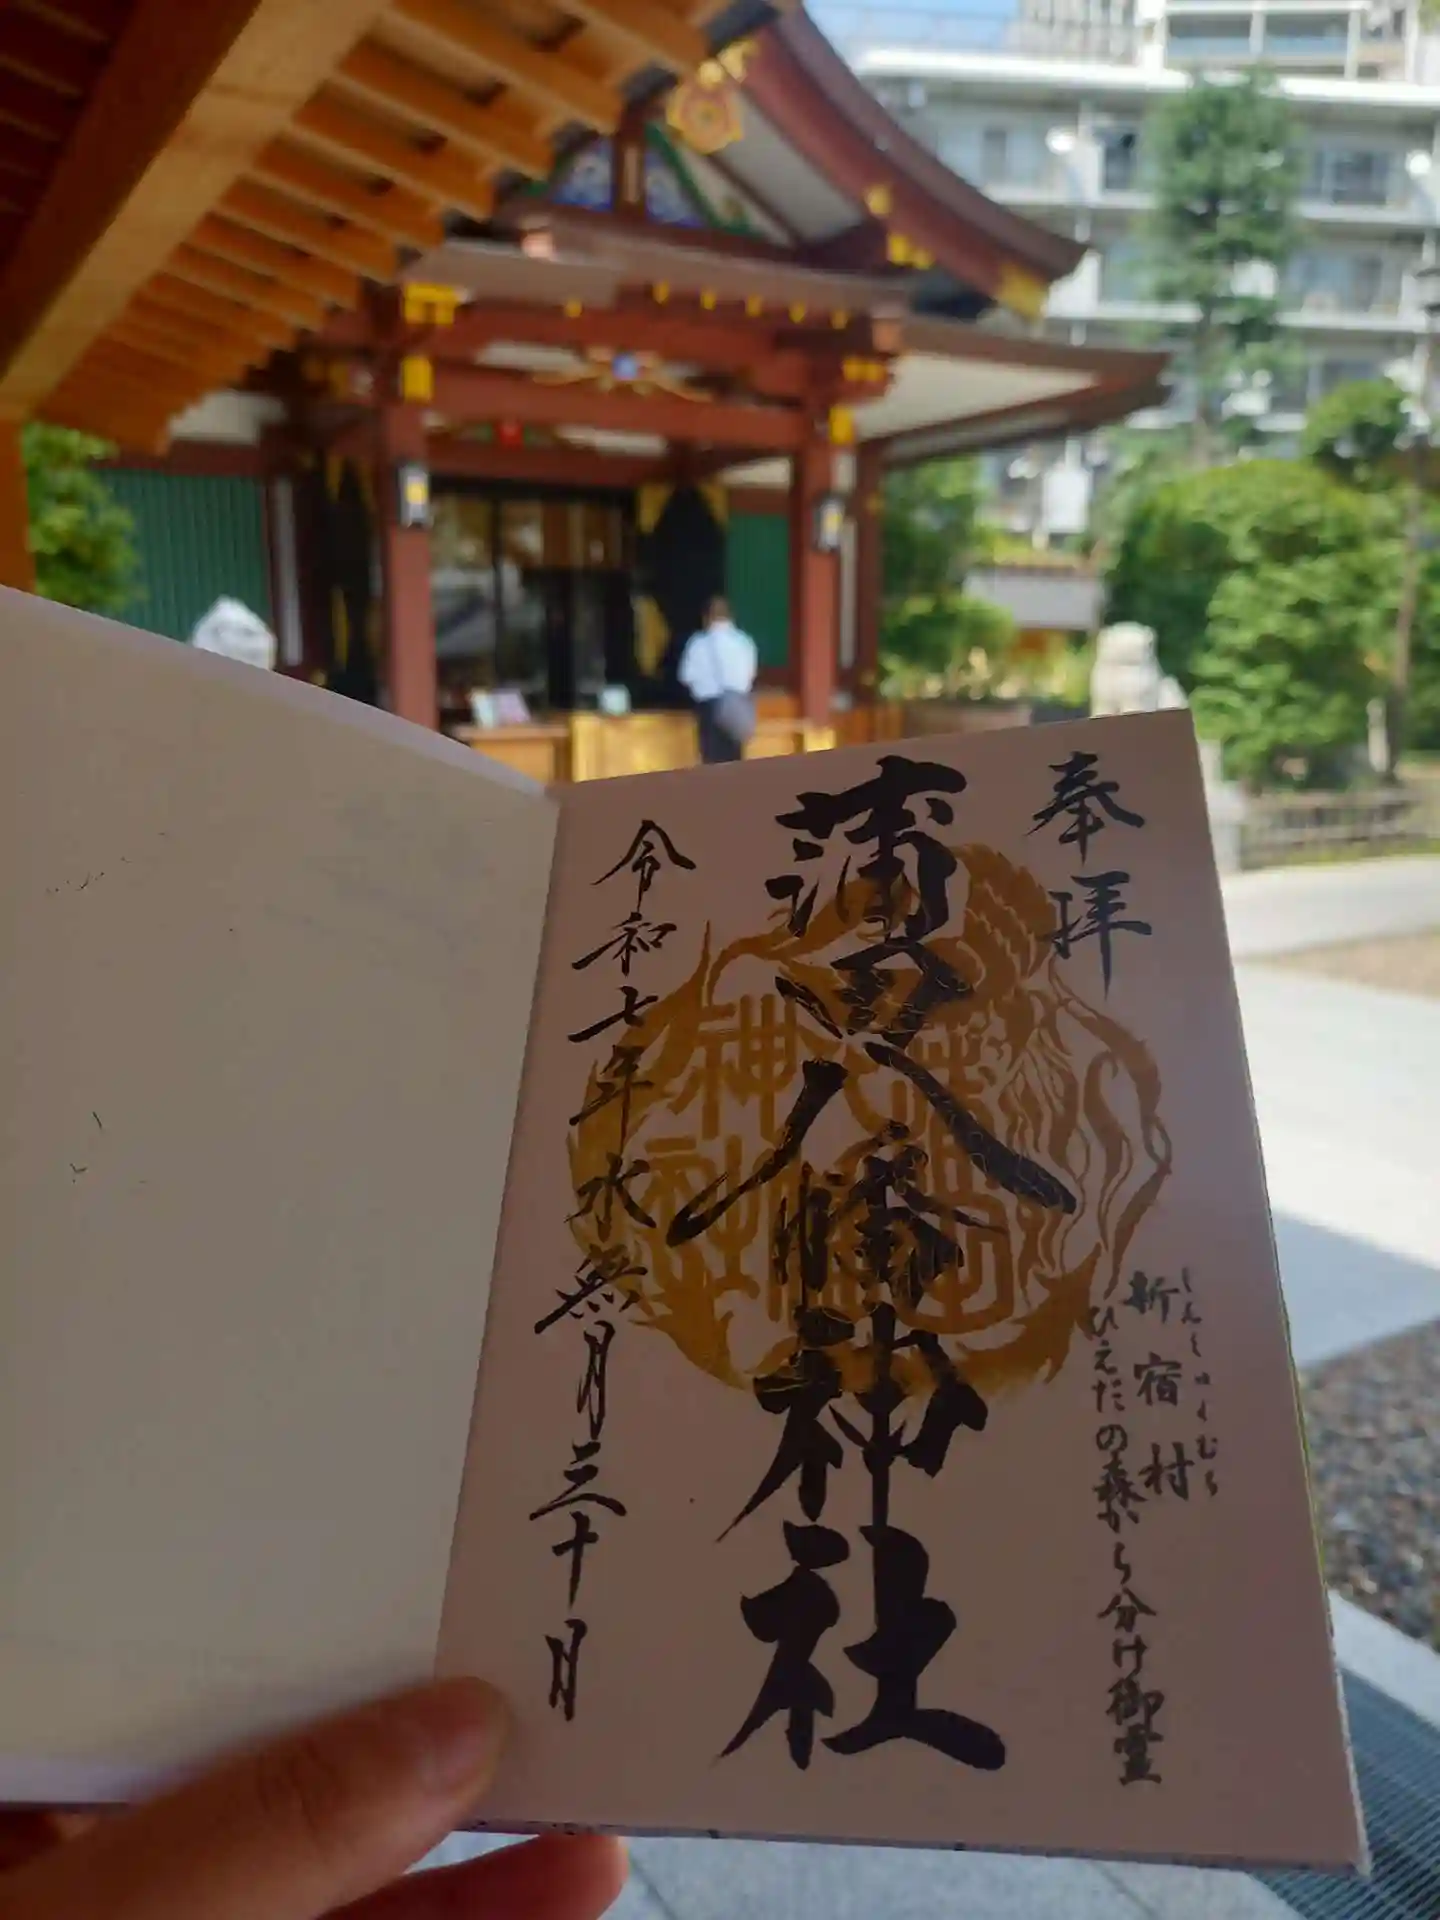 奉拝
しんしゅくむら
新宿村
ひえだの森から分け御霊
蒲田八幡神社
蒲田八幡神社
令和七年水無月三十日